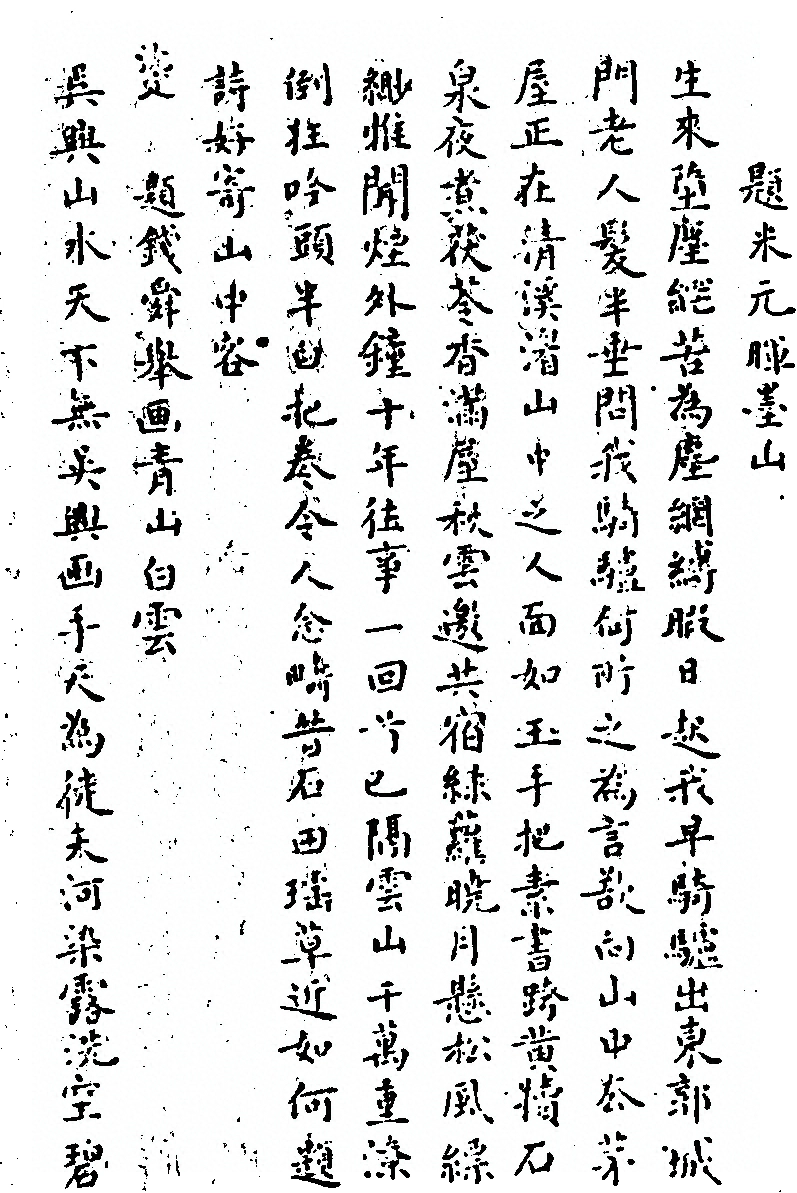 題米元暉墨山
生來墮塵絕苦為塵網縛暇日起我早騎驢出東郭城
門老人髮半垂問我騎驢何所之為言欲向山中去茅
屋正在清溪湄山中之人面如玉手把素書跨黃犢石
泉夜煮茯苓香滿屋秋雲邀共宿綠蘿曉月懸松風縹
緲惟聞煙外鐘十年往事一回首已隔雲山千萬重潦
倒狂吟頭半白把卷令人念疇昔石田瑤草近如何題
詩好寄山中客
題錢舜舉画青山白雲
吳興山水天下無吳興画手天為徒河染露洗空碧